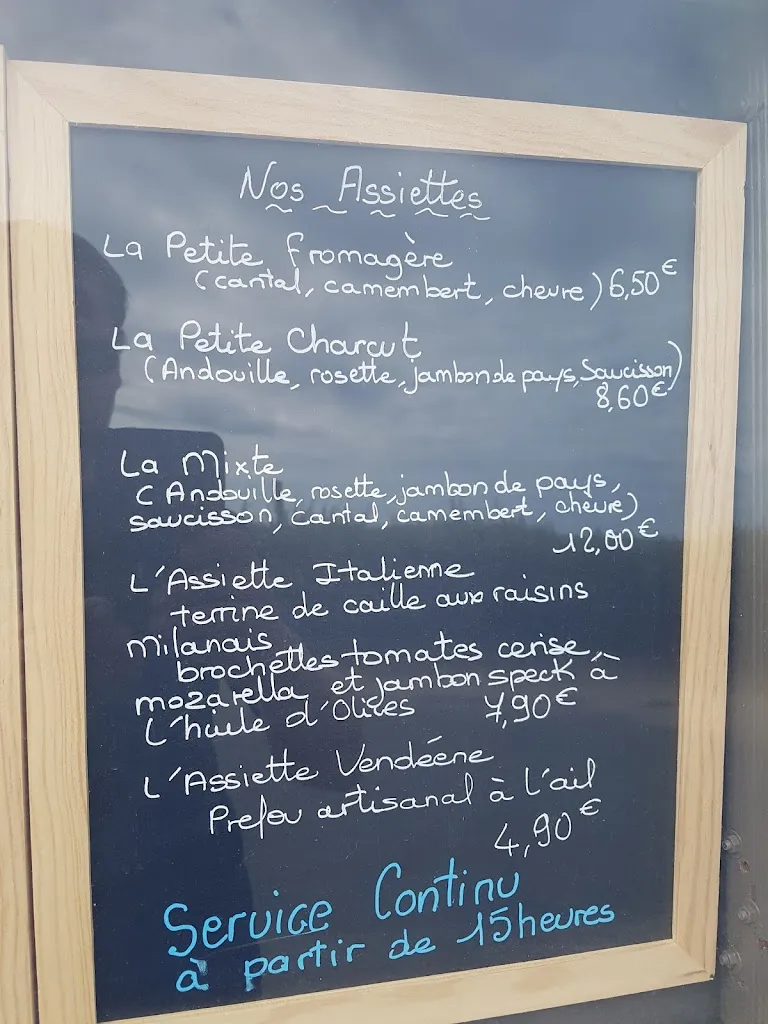 Nos Assiettes
La Petite fromagère
(cantal, camembert, chevre) 6,50€
La Petite Charcut
(Andouille, rosette, jambon de pays, Saucisson)
8,60€
La Mixte
(Andouille, rosette, jambon de pays,
saucisson, cantal, camembert, chevre)
12,00€
L'Assiette Italienne
terrine de caille aux raisins
milanais
brochettes tomates cerise,
mozarella et jambon speck à
l'huile d'Olives 7,90€
L'Assiette Vendéene
Prefou artisanal à l'ail
4,90€
Service Continu
à partir de 15heures